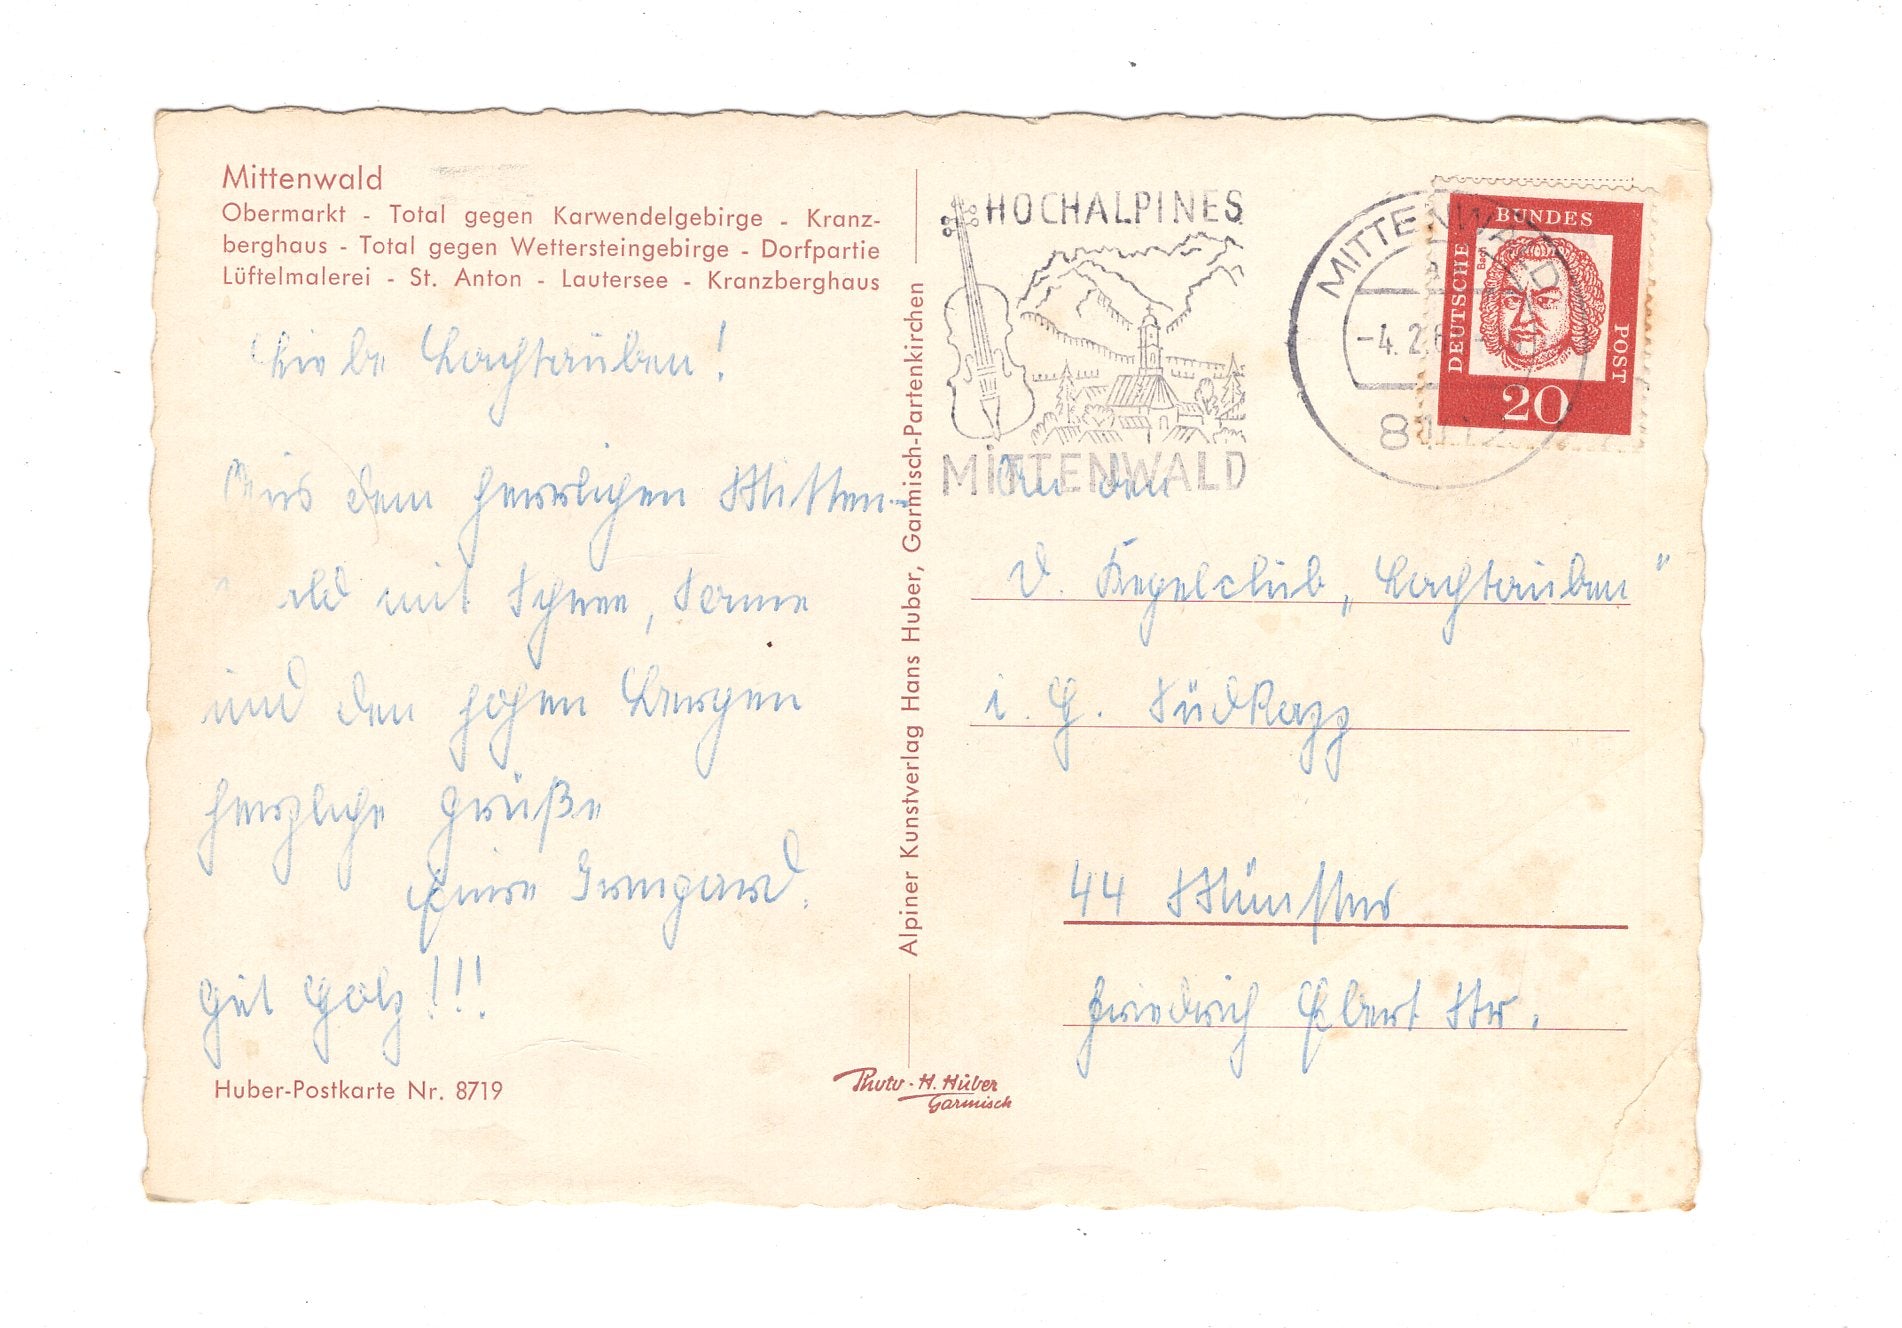 Mittenwald
Obermarkt - Total gegen Karwendelgebirge - Kranz-
berghaus - Total gegen Wettersteingebirge - Dorfpartie
Lüftelmalerei - St. Anton - Lautersee - Kranzberghaus
Liebe Lachtauben!
Aus dem herrlichen Mitten-
wald mit Schnee, Sonne
und den hohen Bergen
herzliche Grüße
Eure Irmgard.
Gut Holz!!!
Huber-Postkarte Nr. 8719
Alpiner Kunstverlag Hans Huber, Garmisch-Partenkirchen
Photo-H. Huber
Garmisch
HOCHALPINES
MITTENWALD
MITTENWALD
a
-4.2.6
81
DEUTSCHE
BUNDES
POST
Bach
20
An den
d. Kegelclub „Lachtauben"
i. H. Südkapp
44 Münster
Friedrich Ebert Str.